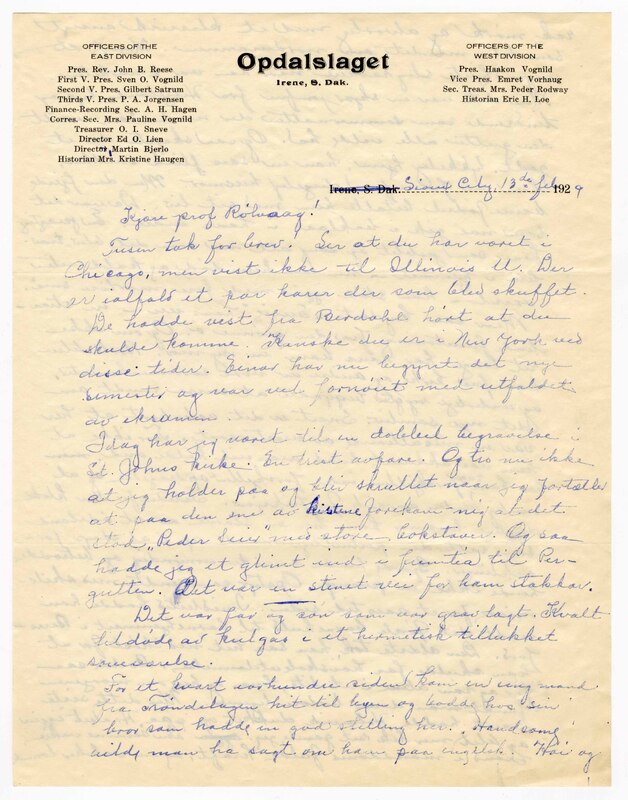 OFFICERS OF THE
EAST DIVISION
Pres. Rev. John B. Reese
First V. Pres. Sven O. Vognild
Second V. Pres. Gilbert Satrum
Thirds V. Pres. P. A. Jorgensen
Finance-Recording Sec. A. H. Hagen
Corres. Sec. Mrs. Pauline Vognild
Treasurer O. I. Sneve
Director Ed O. Lien
Director Martin Bjerlo
Historian Mrs. Kristine Haugen
Opdalslaget
Irene, S. Dak.
OFFICERS OF THE
WEST DIVISION
Pres. Haakon Vognild
Vice Pres. Emret Vorhaug
Sec. Treas. Mrs. Peder Rodway
Historian Eric H. Loe
Irene, S. Dak. Sioux City, 13de feb 1929
Kjære prof Rølvaag!
Tusen tak for brev! Ser at du har været i
Chicago, men vist ikke til Illinois U. Der
er ialfald et par karer der som blev skuffet.
De hadde vist fra Berdahl hørt at du
skulde komme. Kanske du er i New York ved
disse tider. Einar har nu begynt det nye
semester og var vel fornøiet med utfaldet
av eksamen.
Idag har jeg været til en dobbelt begravelse i
St. Johns kirke. En trist affære. Og tro nu ikke
at jeg holder paa og blir skrullet naar jeg fortæller
at paa den ene av kistene forekom mig at det
stod "Peder Seier" med store bokstaver. Og saa
hadde jeg et glimt ind i fremtia til Per-
gutten. Det var en stenet vei for ham stakkar.
Det var far og søn som var gravlagt. Kvalt
tildøde av kulgas i et hermetisk tillukket
soveværelse.
For et kvart aarhundre siden kom en ung mand
fra Trøndelagen hit til byen og bodde hos sin
bror som hadde en god stilling her. Handsome
vilde man ha sagt om ham paa engelsk. Høi og